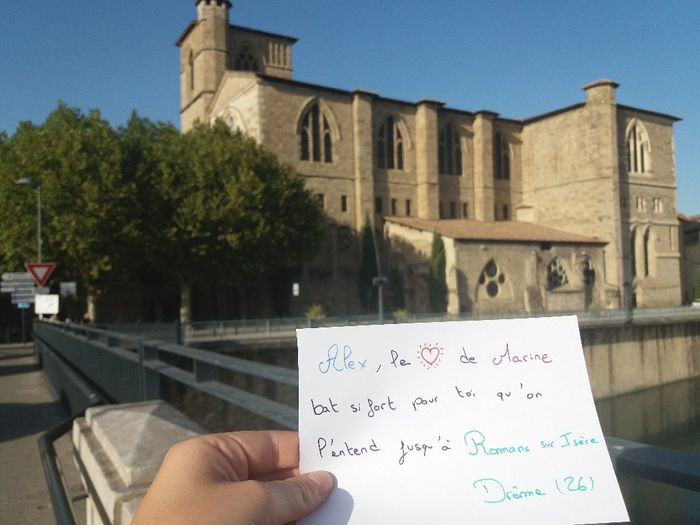 Alex, le ♡ de Marine
bat si fort pour toi qu'on
l'entend jusqu'à Romans sur Isère
Drôme (26)